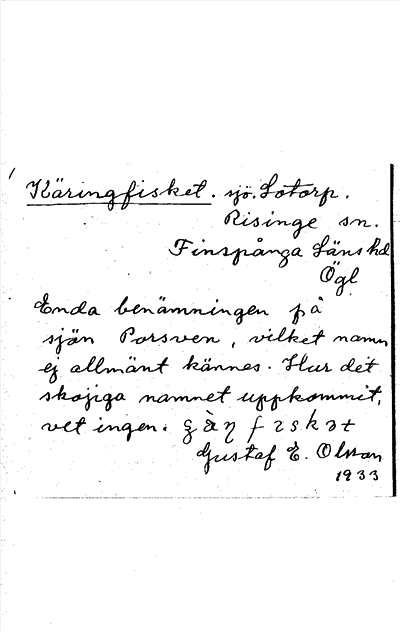 Käringfisket. sjö. Lotorp.
Risinge sn.
Finspånga Läns hd
Ögl.
Enda benämningen på
sjön Porsven, vilket namn
ej allmänt kännes. Hur det
skojiga namnet uppkommit,
vet ingen.
Gustaf E. Olsson
1933